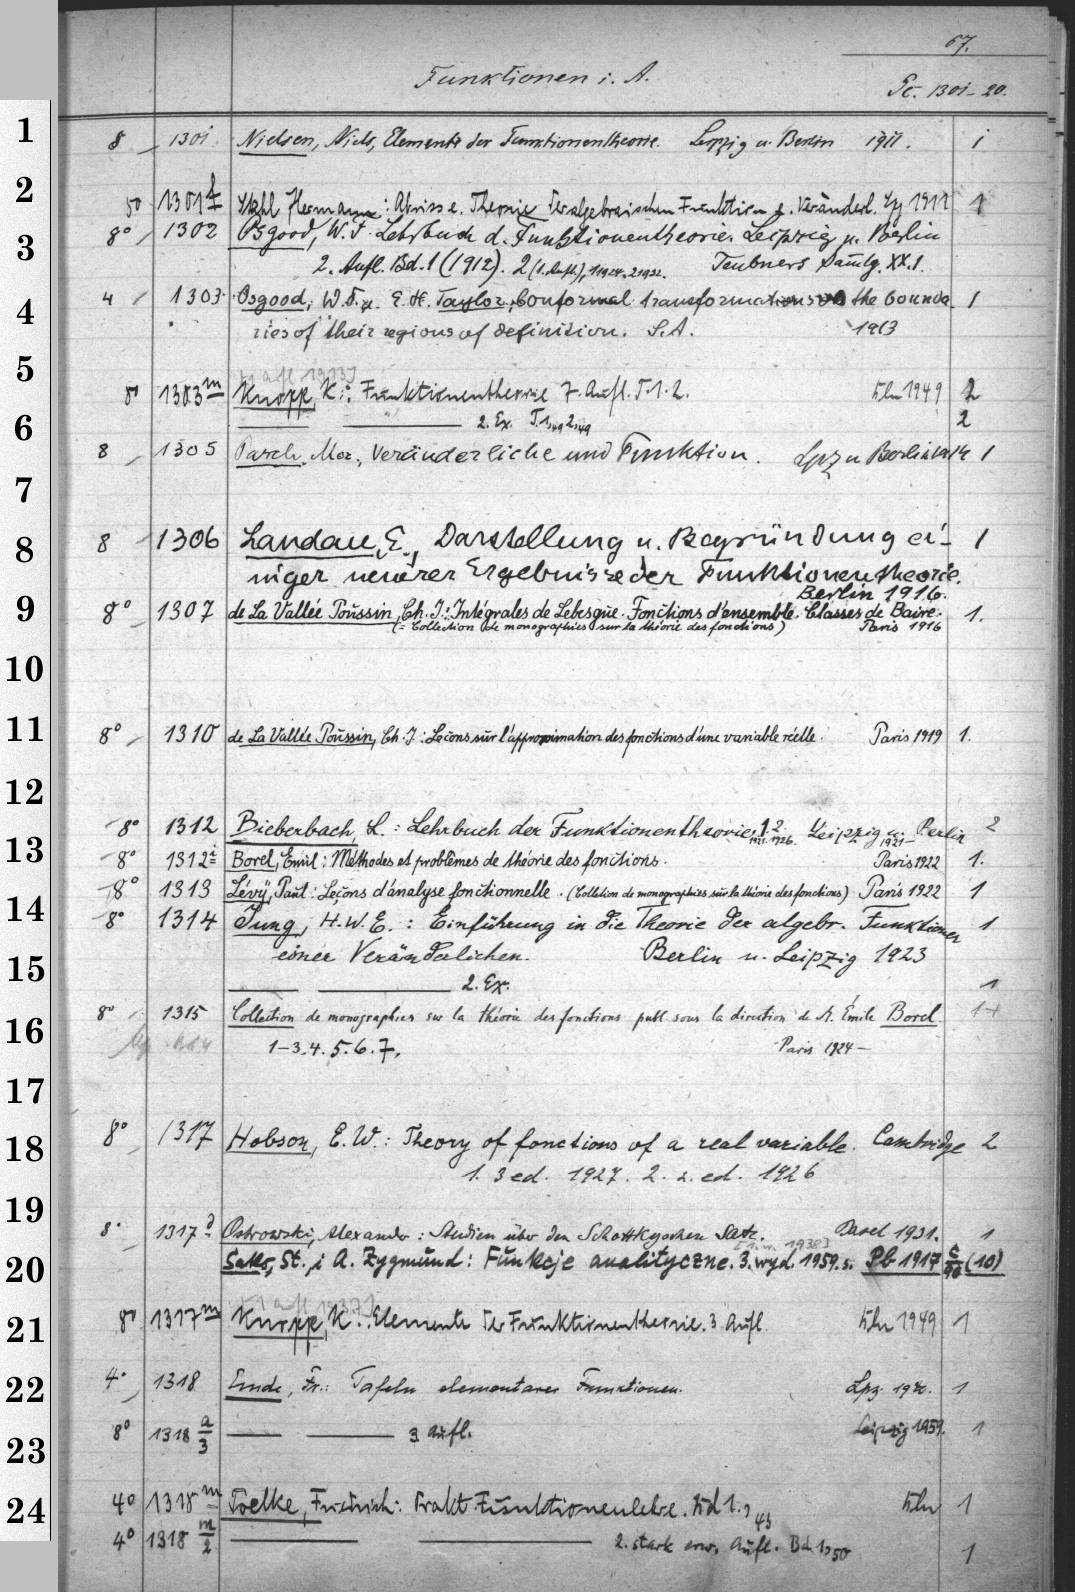 67.
Funktionen i. A.
Sc. 1301-20.
1
8 1301 Nielsen, Niels, Elemente der Funktionentheorie. Leipzig u. Berlin 1911. 1
2
8° 1301 Stahl Hermann: Abriss e. Theorie der algebraischen Funktion e. Veränderl. Lg 1911 1
8° 1302 Osgood, W. F. Lehrbuch d. Funktionentheorie. Leipzig u. Berlin
3
2. Aufl. Bd. 1 (1912). 2 (1. Aufl.), 1 1924. 2 1932. Teubners Samlg. XX.1.
4 1303 Osgood, W. F. u. E. H. Taylor, Conformal transformations on the bounda 1
4
ries of their regions of definition. S.A. 1913
5
8° 1303 m Knopp, K.: Funktionentheorie 7. Aufl. T. 1. 2. Bln 1949 2
2. Ex. T. 1,49 2,49 2
6
8 1305 Pasch, Mor., Veränderliche und Funktion. Lpz u Berlin 1914 1
7
8
8 1306 Landau, E., Darstellung u. Begründung ei- 1
niger neuerer Ergebnisse der Funktionentheorie.
Berlin 1916.
9
8° 1307 de La Vallée Poussin, Ch. J.: Intégrales de Lebesgue. Fonctions d'ensemble. Classes de Baire. 1.
(= Collection de monographies sur la théorie des fonctions) Paris 1916
10
11
8° 1310 de La Vallée Poussin, Ch. J.: Leçons sur l'approximation des fonctions d'une variable réelle. Paris 1919 1.
12
8° 1312 Bieberbach, L.: Lehrbuch der Funktionentheorie, 1. 2. Leipzig u. Berlin 2
1921. 1926. 1921-
13
8° 1312 i Borel, Emil: Méthodes et problèmes de théorie des fonctions. Paris 1922 1.
8° 1313 Lévy, Paul: Leçons d'analyse fonctionnelle. (Collection de monographies sur la théorie des fonctions) Paris 1922 1
14
8° 1314 Jung, H. W. E.: Einführung in die Theorie der algebr. Funktionen 1
einer Veränderlichen. Berlin u. Leipzig 1923
15
2. Ex. 1
8° 1315 Collection de monographies sur la théorie des fonctions publ. sous la direction de M. Émile Borel 1+
16
1-3. 4. 5. 6. 7. Paris 1924-
17
18
8° 1317 Hobson, E. W.: Theory of fonctions of a real variable. Cambridge 2
1. 3 ed. 1927. 2. 2. ed. 1926
19
8° 1317 a Ostrowski, Alexander: Studien über den Schottkyschen Satz. Basel 1931. 1
[1. w. 1938]
20
Saks, St. i A. Zygmund: Funkcje analityczne. 3. wyd. 1959. s. Pb 1917 c/90 (10)
[1 Aufl 1937]
21
8° 1317 m Knopp, K.: Elemente der Funktionentheorie. 3. Aufl. Bln 1949 1
22
4° 1318 Emde, Fr.: Tafeln elementarer Funktionen. Lpz. 1940. 1
8° 1318 a/3 3 Aufl. Leipzig 1959. 1
23
24
4° 1318 m Toelke, Friedrich: Prakt. Funktionenlehre. Bd 1., 43 Bln 1
4° 1318 m/2 2. stark erw. Aufl. Bd. 1, 50 1